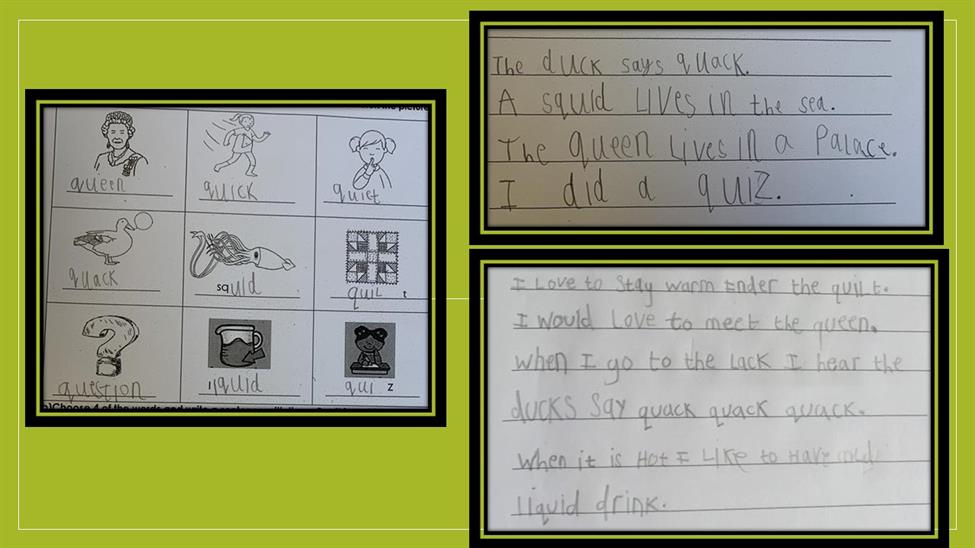 the picture
queen quick quiet
quack squid quilt
question liquid quiz
Choose 4 of the words and write
The duck says quack.
A squid LIVES in the sea.
The queen Lives in a Palace.
I did a quiz.
I Love to Stay warm Ender the quilt.
I would Love to meet the queen.
When I go to the lack I hear the
ducks say quack quack quack.
When it is Hot I Like to Have
liquid drink.